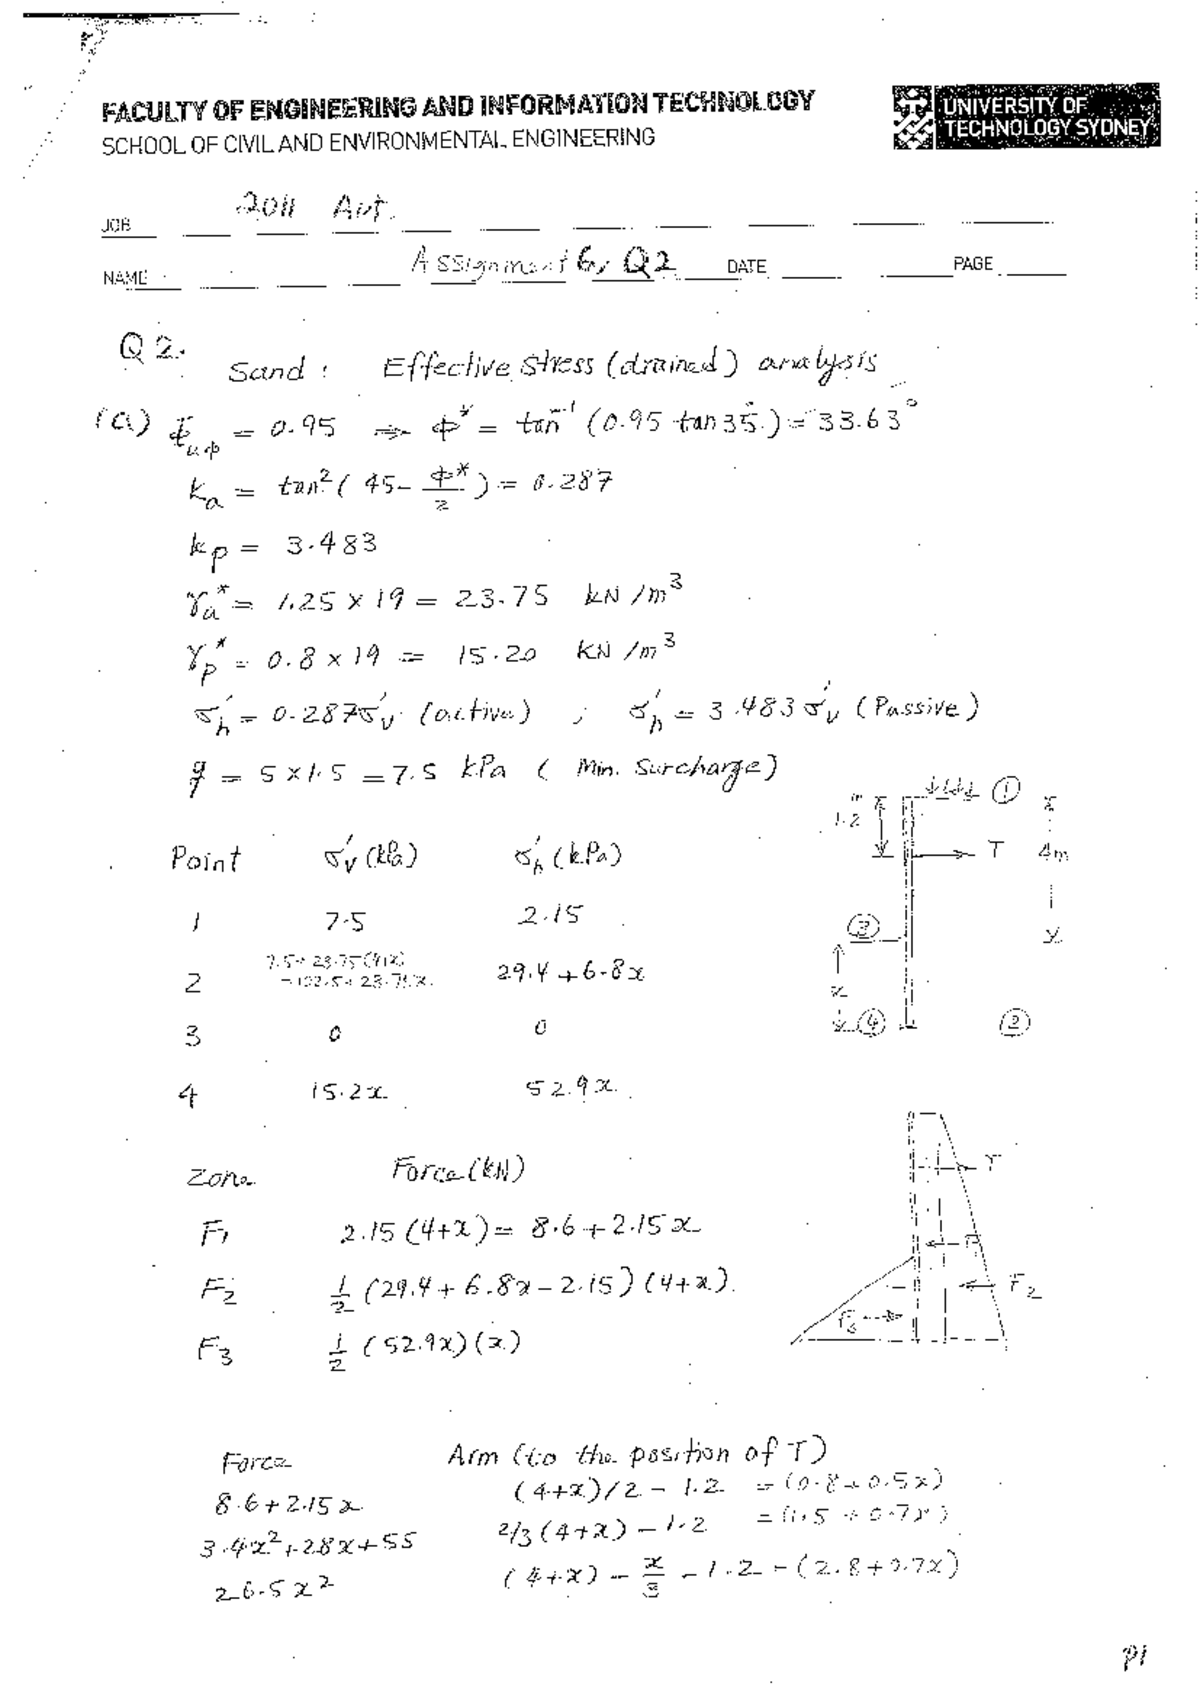 FACULTY OF ENGINEERING AND INFORMATION TECHNOLOGY
SCHOOL OF CIVIL AND ENVIRONMENTAL ENGINEERING
UNIVERSITY OF
TECHNOLOGY SYDNEY
JOB 2011 Aut.
NAME Assignment 6, Q2 DATE PAGE
Q2. Sand: Effective Stress (drained) analysis
(a) Φuφ = 0.95 ⇒ φ* = tan⁻¹ (0.95 tan 35°) = 33.63°
Ka = tan² (45 - φ*/2) = 0.287
kp = 3.483
γa* = 1.25 × 19 = 23.75 kN/m³
γp* = 0.8 × 19 = 15.20 kN/m³
σh' = 0.287σv' (active) ; σh' = 3.483 σv' (Passive)
q = 5 × 1.5 = 7.5 kPa (Min. Surcharge)
① 
1.2 m
T 4m
③
x
④ ②
Point σv' (kPa) σh' (kPa)
1 7.5 2.15
2 7.5 + 23.75(4+x) = 102.5 + 23.75x 29.4 + 6.8x
3 0 0
4 15.2x 52.9x
Zone Force (kN)
F1 2.15 (4+x) = 8.6 + 2.15x
F2 1/2 (29.4 + 6.8x - 2.15) (4+x)
F3 1/2 (52.9x)(x)
T
F1
F2
F3
Force Arm (to the position of T)
8.6 + 2.15x (4+x)/2 - 1.2 = (0.8 + 0.5x)
3.4x² + 28x + 55 2/3 (4+x) - 1.2 = (1.5 + 0.7x)
26.5x² (4+x) - x/3 - 1.2 = (2.8 + 0.7x)
P1